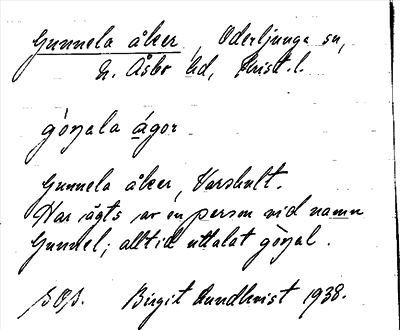 Gunnela åker, Oderljunga sn,
N. Åsbo hd, Krist. l.
göŋala ågor
Gunnela åker, Varshult.
Har ägts av en person vid namn
Gunnel; alltid uttalat göŋal.
Birgit Lundkvist 1938.